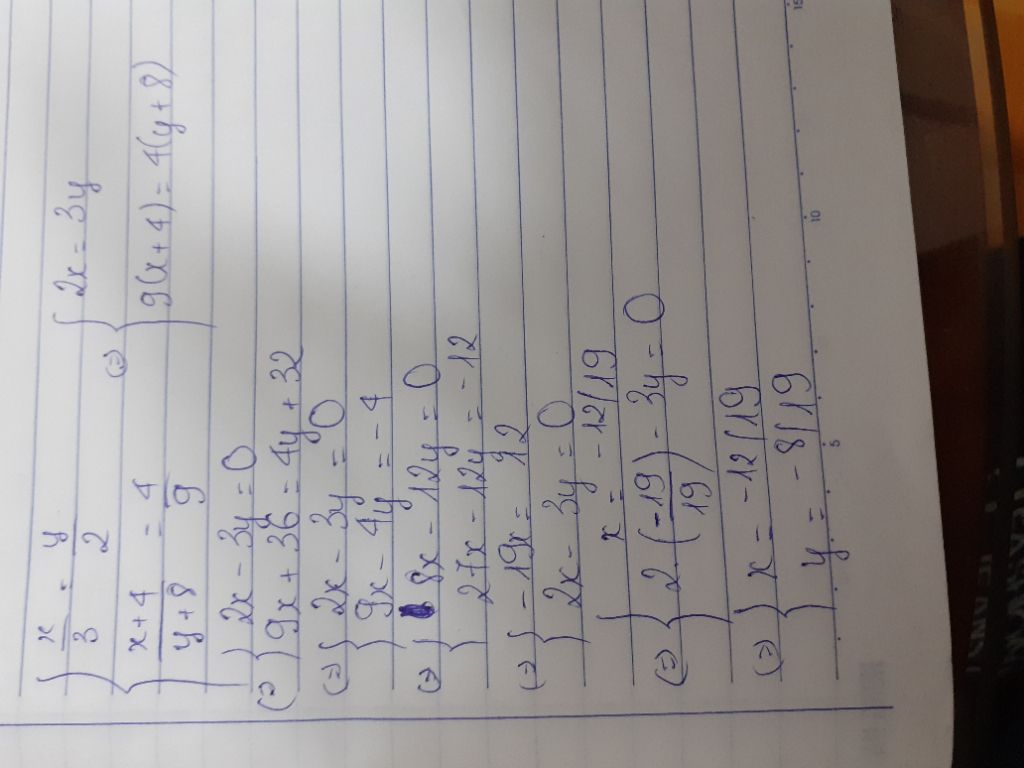 { x/3 = y/2 (=) { 2x = 3y
{ x+4/y+8 = 4/9 { 9(x+4) = 4(y+8)
(=) { 2x - 3y = 0
{ 9x + 36 = 4y + 32
(=) { 2x - 3y = 0
{ 9x - 4y = -4
(=) { 8x - 12y = 0
{ 27x - 12y = -12
(=) { -19x = 12
{ 2x - 3y = 0
(=) { x = -12/19
{ 2.(-19/19) - 3y = 0
(=) { x = -12/19
{ y = -8/19
5
10
15